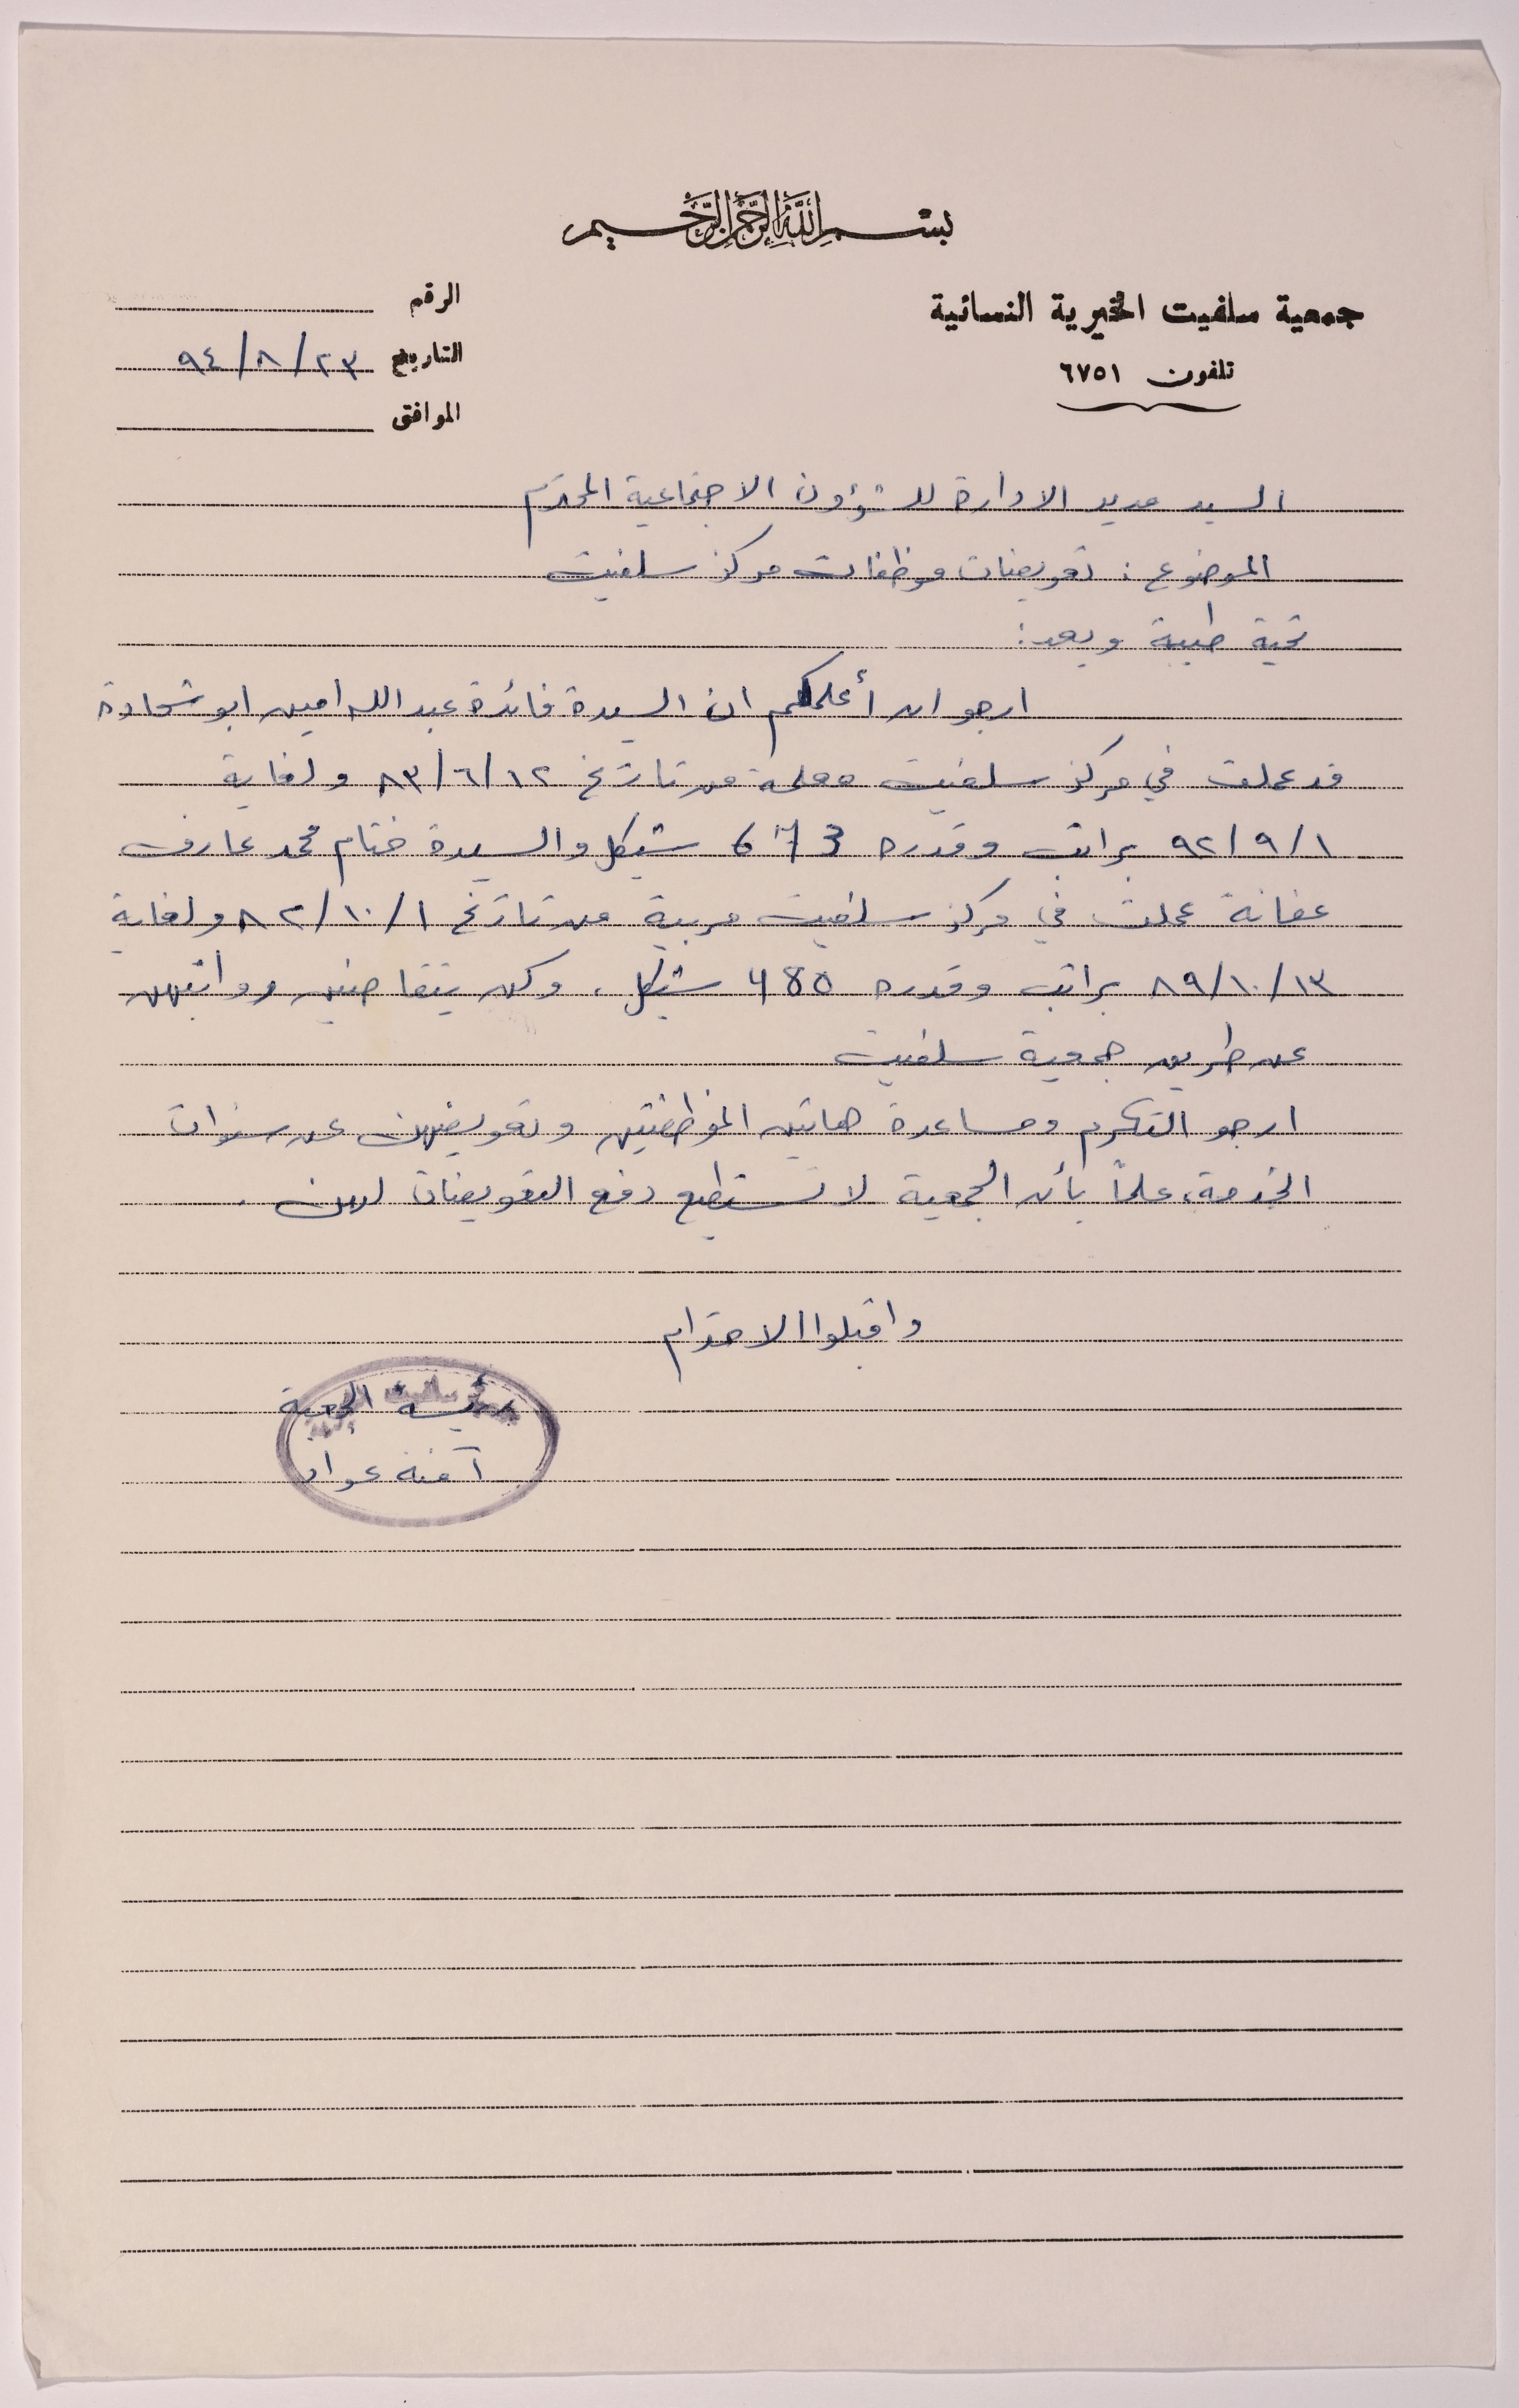 بسم الله الرحمن الرحيم
جمعية سلفيت الخيرية النسائية
تلفون ٦٧٥١
الرقم
التاريخ ٢٣/٨/٩٤
الموافق
السيد مدير الادارة للشؤون الاجتماعية المحترم
الموضوع : تعويضات موظفات مركز سلفيت
تحية طيبة وبعد:
ارجو ان أعلمكم ان السيدة فائدة عبد الله امين ابو شحادة
قد عملت في مركز سلفيت معلمة من تاريخ ١٢/٦/٨٣ ولغاية
١/٩/٩٢ براتب وقدره 673 شيكل والسيدة ختام محمد عارف
عفانة عملت في مركز سلفيت مربية من تاريخ ١/١٠/٨٢ ولغاية
١٣/١٠/٨٩ براتب وقدره 485 شيكل، وكن يتقاضين رواتبهن
عن طريق جمعية سلفيت
ارجو التكرم ومساعدة هاتين الموظفتين وتعويضهن عن سنوات
الخدمة، علماً بأن الجمعية لا تستطيع دفع التعويضات لهن .
واقبلوا الاحترام
رئيسة الجمعية
آمنة عواد